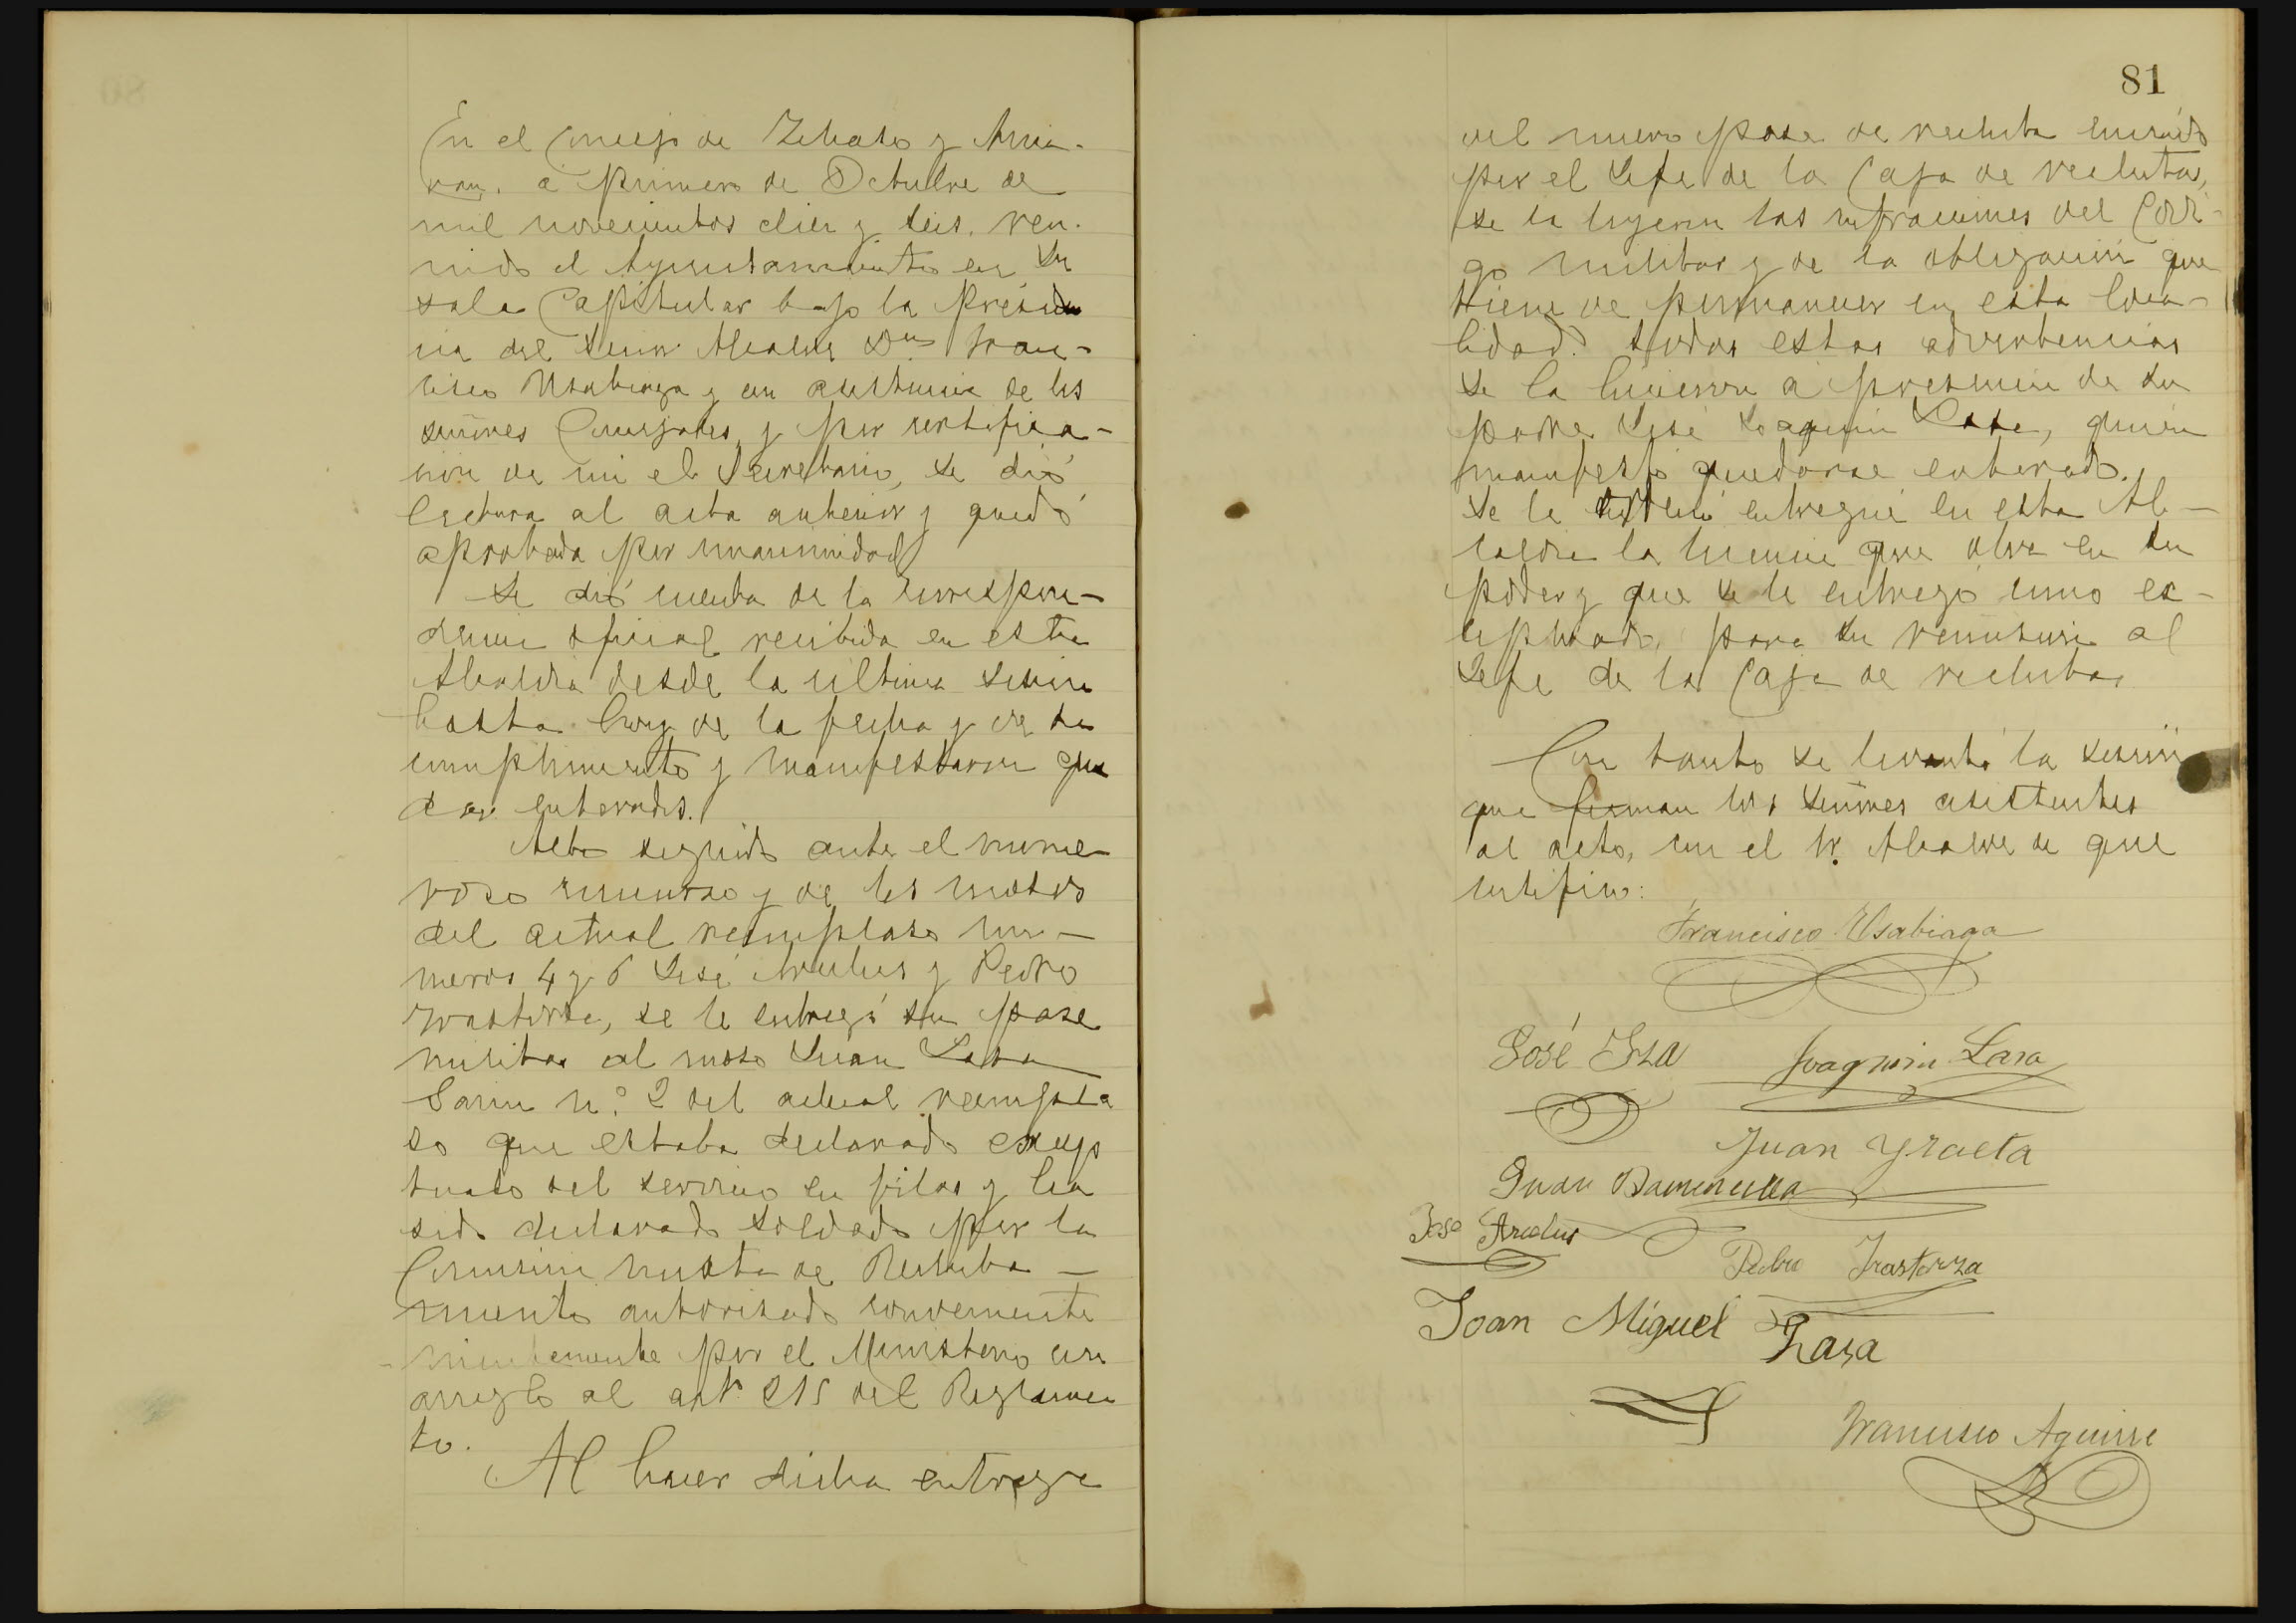 En el Concejo de Zubales y Arria-
ran. a primero de Octubre de
mil novecientos diez y seis. reu-
nido el Ayuntamiento en su
sala Capitular bajo la Presiden
cia del Senor Alcalde Dn Fran-
cisco Usabiaga y con asistencia de los
señores Concejales y por certifica-
cion de mi el Secretario, se dió
lectura al acta anterior y quedó
aprobada por unanimidad
Se dió cuenta de la correspon-
dencia oficial recibida en esta
Alcaldia desde la ultima sesion
hasta hoy de la fecha y de su
cumplimiento y manifestaron que
dar enterados.
Acto seguido ante el nume
roso concurso y de los mozos
del actual reemplazo nu-
meros 4 y 6 José Arcelus y Pedro
Irastorza, se le entregó su pase
militar al mozo Juan Lasa
n.º 2 del actual reempla
zo que estaba declarado excep
tuado del servicio en filas y ha
sido declarado soldado por la
Comision mixta de Recluta-
miento autorizado conveniente
por el Ministerio con
arreglo al artº 215 del Reglamen
to.
Al hacer dicha entrega
81
del nuevo pase de recluta enviado
por el Jefe de la Caja de reclutas,
se la leyeron las infracciones del Codi-
go militar y de la obligación que
tiene de permanecer en esta loca-
lidad. todas estas advertencias
se la hicieron a presencia de su
padre José Joaquin Lasa, quien
manifestó quedarse enterado.
Se le ordenó entregue en esta Al-
caldia la licencia que obra en su
poder y que se le entregó como ex-
ceptuado, para su remision al
Jefe de la Caja de reclutas
Con tanto se levantó la sesión
que firman los señores asistentes
al acto, con el Sr. Alcalde de que
certifico:
Francisco Usabiaga
José Isza
Joaquin Lasa
Juan Yraeta
Juan Barrenechea
Jose Arcelus
Pedro Irastorza
Joan Miguel Lasa
Francisco Aguirre